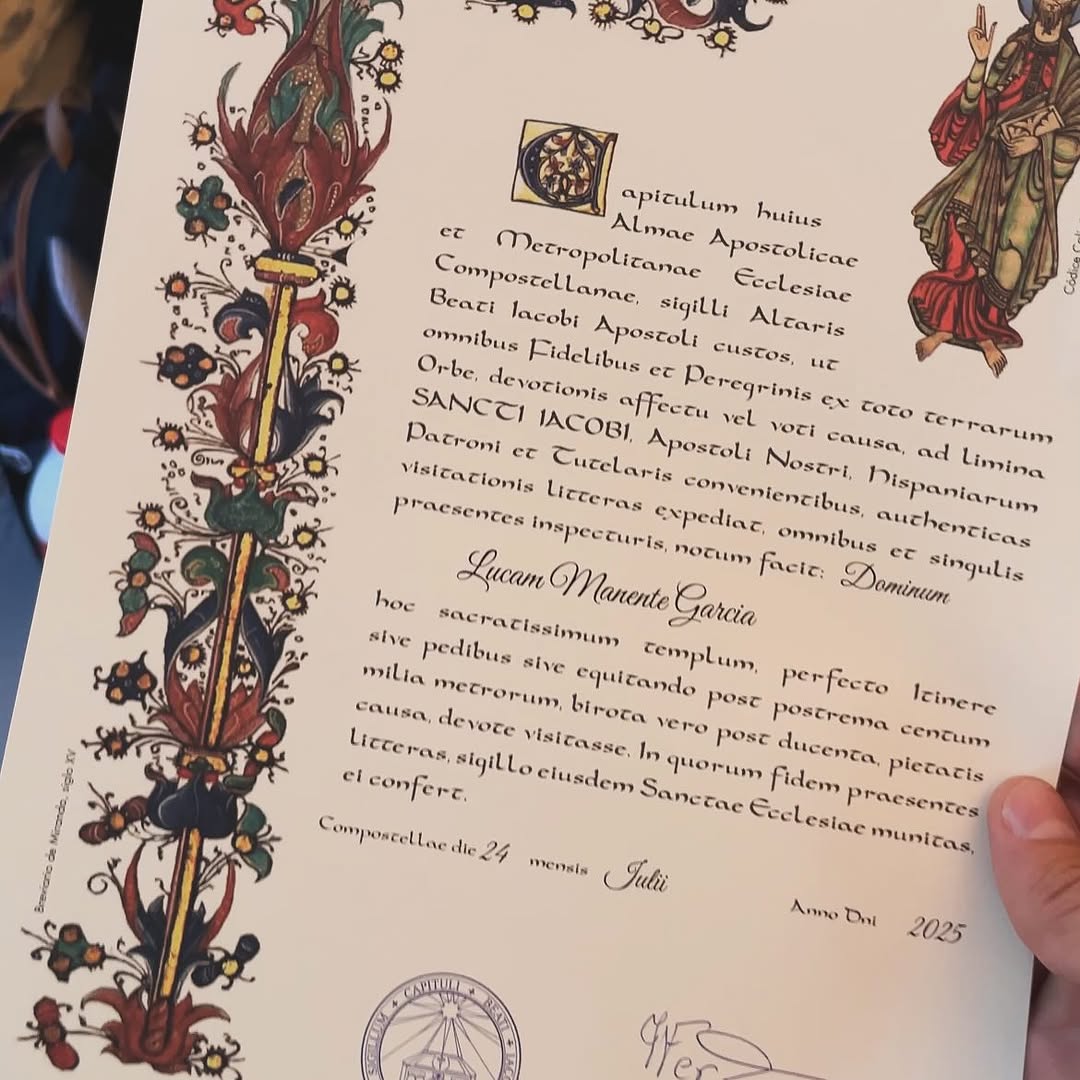 Capitulum huius
Almae Apostolicae
et Metropolitanae Ecclesiae
Compostellanae, sigilli Altaris
Beati Iacobi Apostoli custos, ut
omnibus Fidelibus et Peregrinis ex toto terrarum
Orbe, devotionis affectu vel voti causa, ad limina
SANCTI IACOBI, Apostoli Nostri, Hispaniarum
Patroni et Tutelaris convenientibus, authenticas
visitationis litteras expediat, omnibus et singulis
praesentes inspecturis, notum facit: Dominum
Lucam Manente Garcia
hoc sacratissimum templum, perfecto Itinere
sive pedibus sive equitando post postrema centum
milia metrorum, birota vero post ducenta, pietatis
causa, devote visitasse. In quorum fidem praesentes
litteras, sigillo eiusdem Sanctae Ecclesiae munitas,
ei confert.
Compostellae die 24 mensis Julii
Anno Dni 2025
Breviario de Miranda, siglo XV
Códice
SIGILLUM + CAPITULI + BEATI IACO